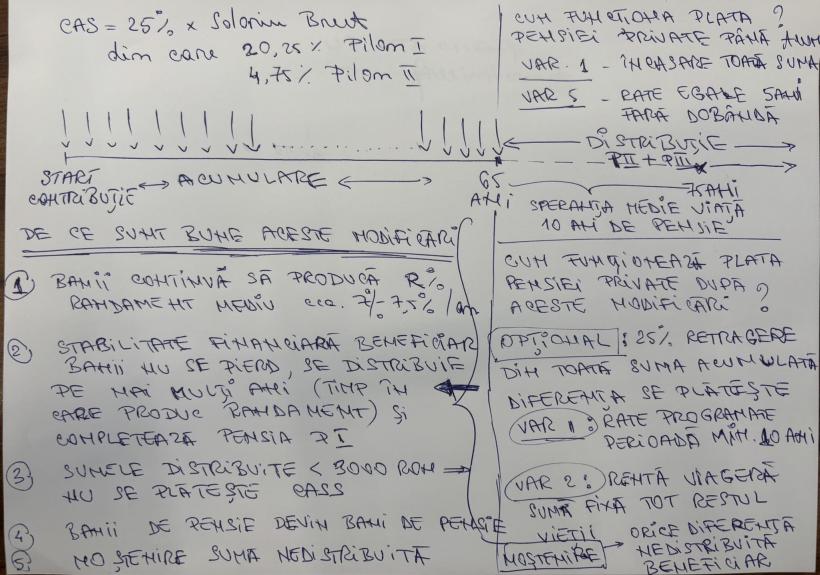 CAS = 25% x Salariu Brut
din care 20,25% Pilon I
4,75% Pilon II
START CONTRIBUȚIE
ACUMULARE
65 ANI
CUM FUNCȚIONA PLATA ?
PENSIEI PRIVATE PÂNĂ ACUM
VAR. 1 - ÎNCASARE TOATĂ SUMA
VAR 5 - RATE EGALE 5ANI
FĂRĂ DOBÂNDĂ
DISTRIBUȚIE
PII + PIII
75ANI
SPERANȚA MEDIE VIAȚĂ
10 ANI DE PENSIE
DE CE SUNT BUNE ACESTE MODIFICĂRI
1 BANII CONTINVĂ SĂ PRODUCĂ R%
RANDAMENT MEDIU cca. 7%-7,5%/an
2 STABILITATE FINANCIARĂ BENEFICIAR
BANII NU SE PIERD, SE DISTRIBUIE
PE MAI MULȚI ANI (TIMP ÎN
CARE PRODUC RANDAMENT) ȘI
COMPLETEAZĂ PENSIA PI
3 SUMELE DISTRIBUITE < 3000 RON
NU SE PLĂTEȘTE CASS
4 BANII DE PENSIE DEVIN BANI DE PENSIE
5 MOȘTENIRE SUMA NEDISTRIBUITĂ
CUM FUNCȚIONEAZĂ PLATA
PENSIEI PRIVATE DUPĂ
ACESTE MODIFICĂRI ?
OPȚIONAL : 25% RETRAGERE
DIN TOATĂ SUMA ACUMULATĂ
DIFERENȚA SE PLĂTEȘTE
VAR 1 : RATE PROGRAMATE
PERIOADĂ MIN. 10 ANI
VAR 2 : RENTĂ VIAGERĂ
SUMĂ FIXĂ TOT RESTUL
VIEȚII
MOȘTENIRE
ORICE DIFERENȚĂ
NEDISTRIBUITĂ
BENEFICIAR